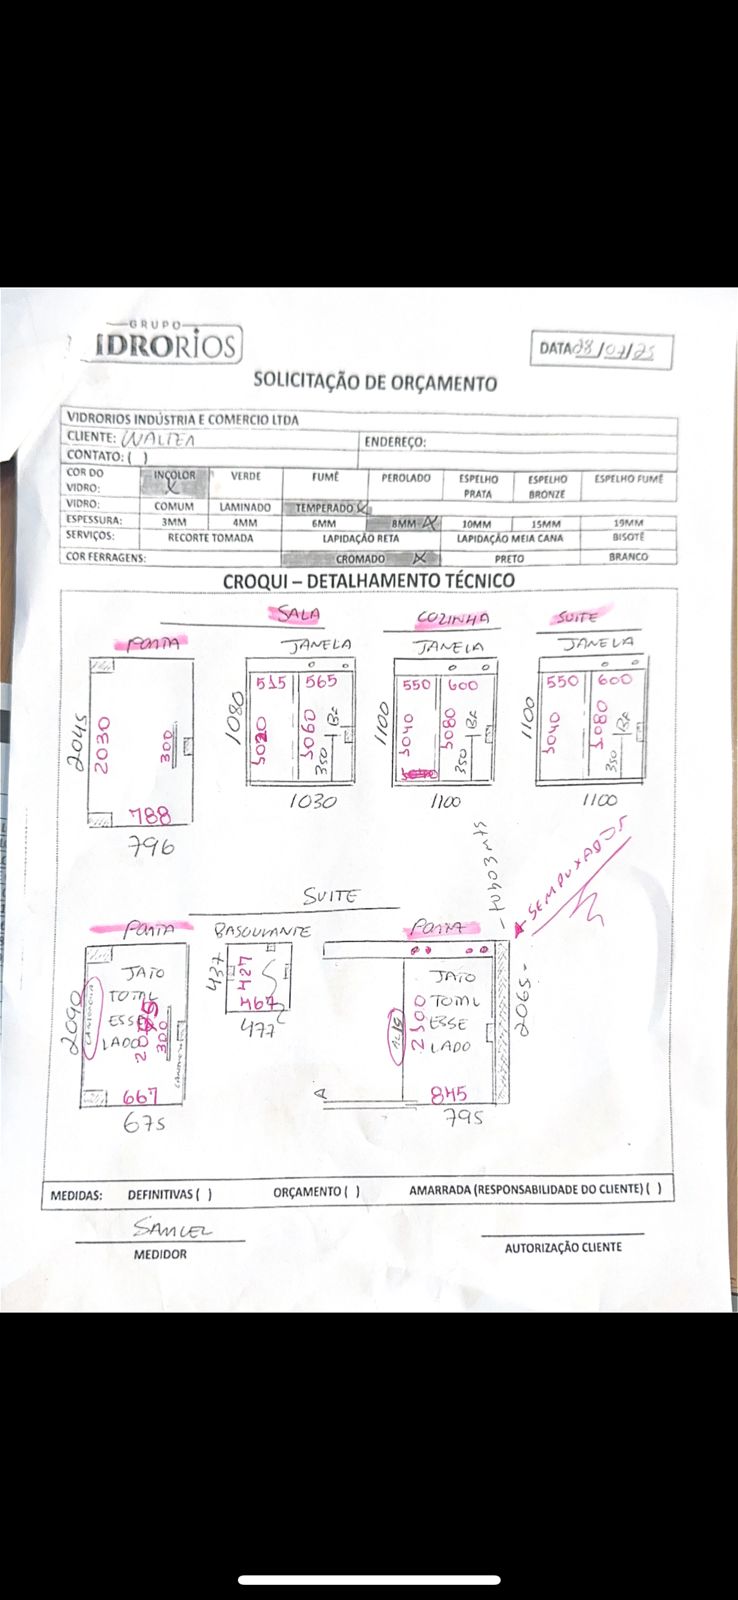 GRUPO
IDRORIOS
DATA 28/07/25
SOLICITAÇÃO DE ORÇAMENTO
VIDRORIOS INDÚSTRIA E COMERCIO LTDA
CLIENTE: WALTER ENDEREÇO:
CONTATO: ( )
COR DO VIDRO: INCOLOR X VERDE FUMÊ PEROLADO ESPELHO PRATA ESPELHO BRONZE ESPELHO FUMÊ
VIDRO: COMUM LAMINADO TEMPERADO X
ESPESSURA: 3MM 4MM 6MM 8MM X 10MM 15MM 19MM
SERVIÇOS: RECORTE TOMADA LAPIDAÇÃO RETA LAPIDAÇÃO MEIA CANA BISOTÊ
COR FERRAGENS: CROMADO X PRETO BRANCO
CROQUI – DETALHAMENTO TÉCNICO
SALA COZINHA SUITE
PORTA JANELA JANELA JANELA
515 565 550 600 550 600
2045 2030 300 1080 1020 1060 350 1100 1040 1080 350 1100 1040 1080 350
788 1030 1100 1100
796
SUITE
tubo 3 mts
SEM PUXADOR
PORTA BASCULANTE PORTA
2090 437 427 2065
JATO TOTAL ESSE LADO
300
467
477
JATO TOTAL ESSE LADO
2100
667 845
675 795
MEDIDAS: DEFINITIVAS ( ) ORÇAMENTO ( ) AMARRADA (RESPONSABILIDADE DO CLIENTE) ( )
SAMUEL
MEDIDOR AUTORIZAÇÃO CLIENTE